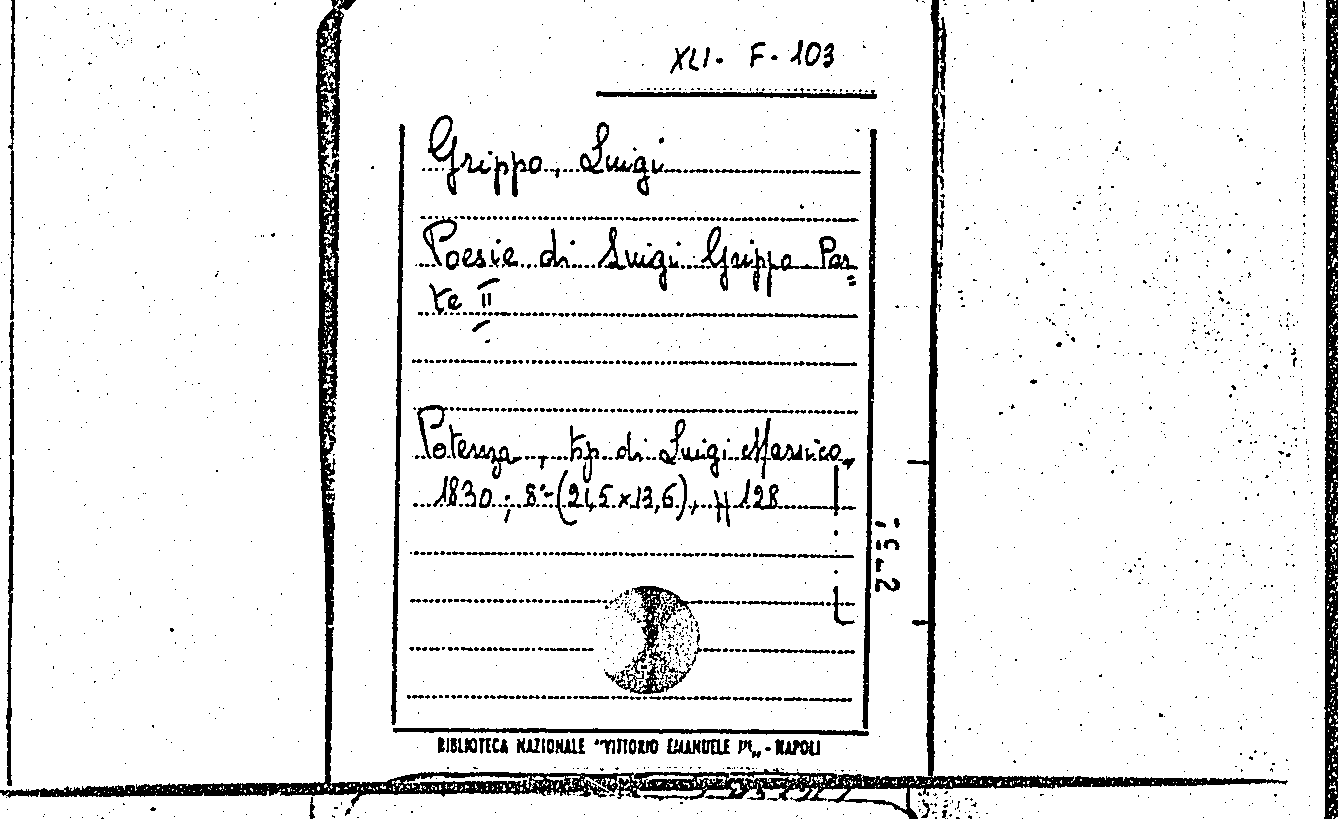 XLI. F. 103
Grippo, Luigi
Poesie di Luigi Grippo Par=
te II
Potenza, tip. di Luigi
1830; 8°-(21,5x13,6), pp 128
BIBLIOTECA NAZIONALE "VITTORIO EMANUELE III„ - NAPOLI